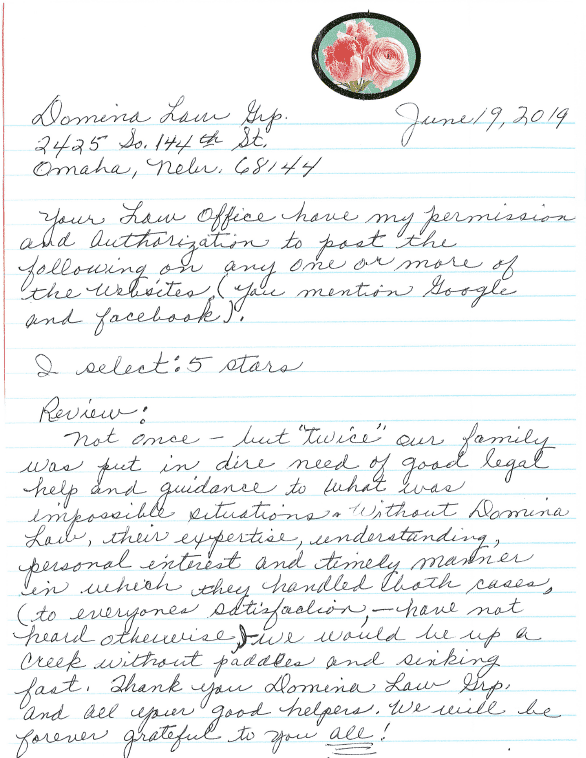 Domina Law Grp. June 19, 2019
2425 So. 144th St.
Omaha, Nebr. 68144
Your Law Office have my permission
and authorization to post the
following on any one or more of
the websites (you mention Google
and facebook).
I select: 5 stars
Review:
Not once - but "twice" our family
was put in dire need of good legal
help and guidance to what was
impossible situations. Without Domina
Law, their expertise, understanding,
personal interest and timely manner
in which they handled both cases,
(to everyones satisfaction, - have not
heard otherwise) - we would be up a
creek without paddles and sinking
fast. Thank you Domina Law Grp.
and all your good helpers. We will be
forever grateful to you all!